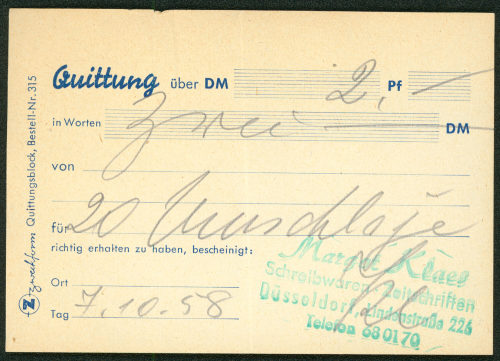 Quittung über DM 2,- Pf -
in Worten Zwei - DM
von
für 20 Umschläge
richtig erhalten zu haben, bescheinigt:
Ort
Tag 7.10.58
Margret Klaes
Schreibwaren, Zeitschriften
Düsseldorf, Lindenstraße 226
Telefon 68 01 70
Zweckform Quittungsblock, Bestell-Nr. 315